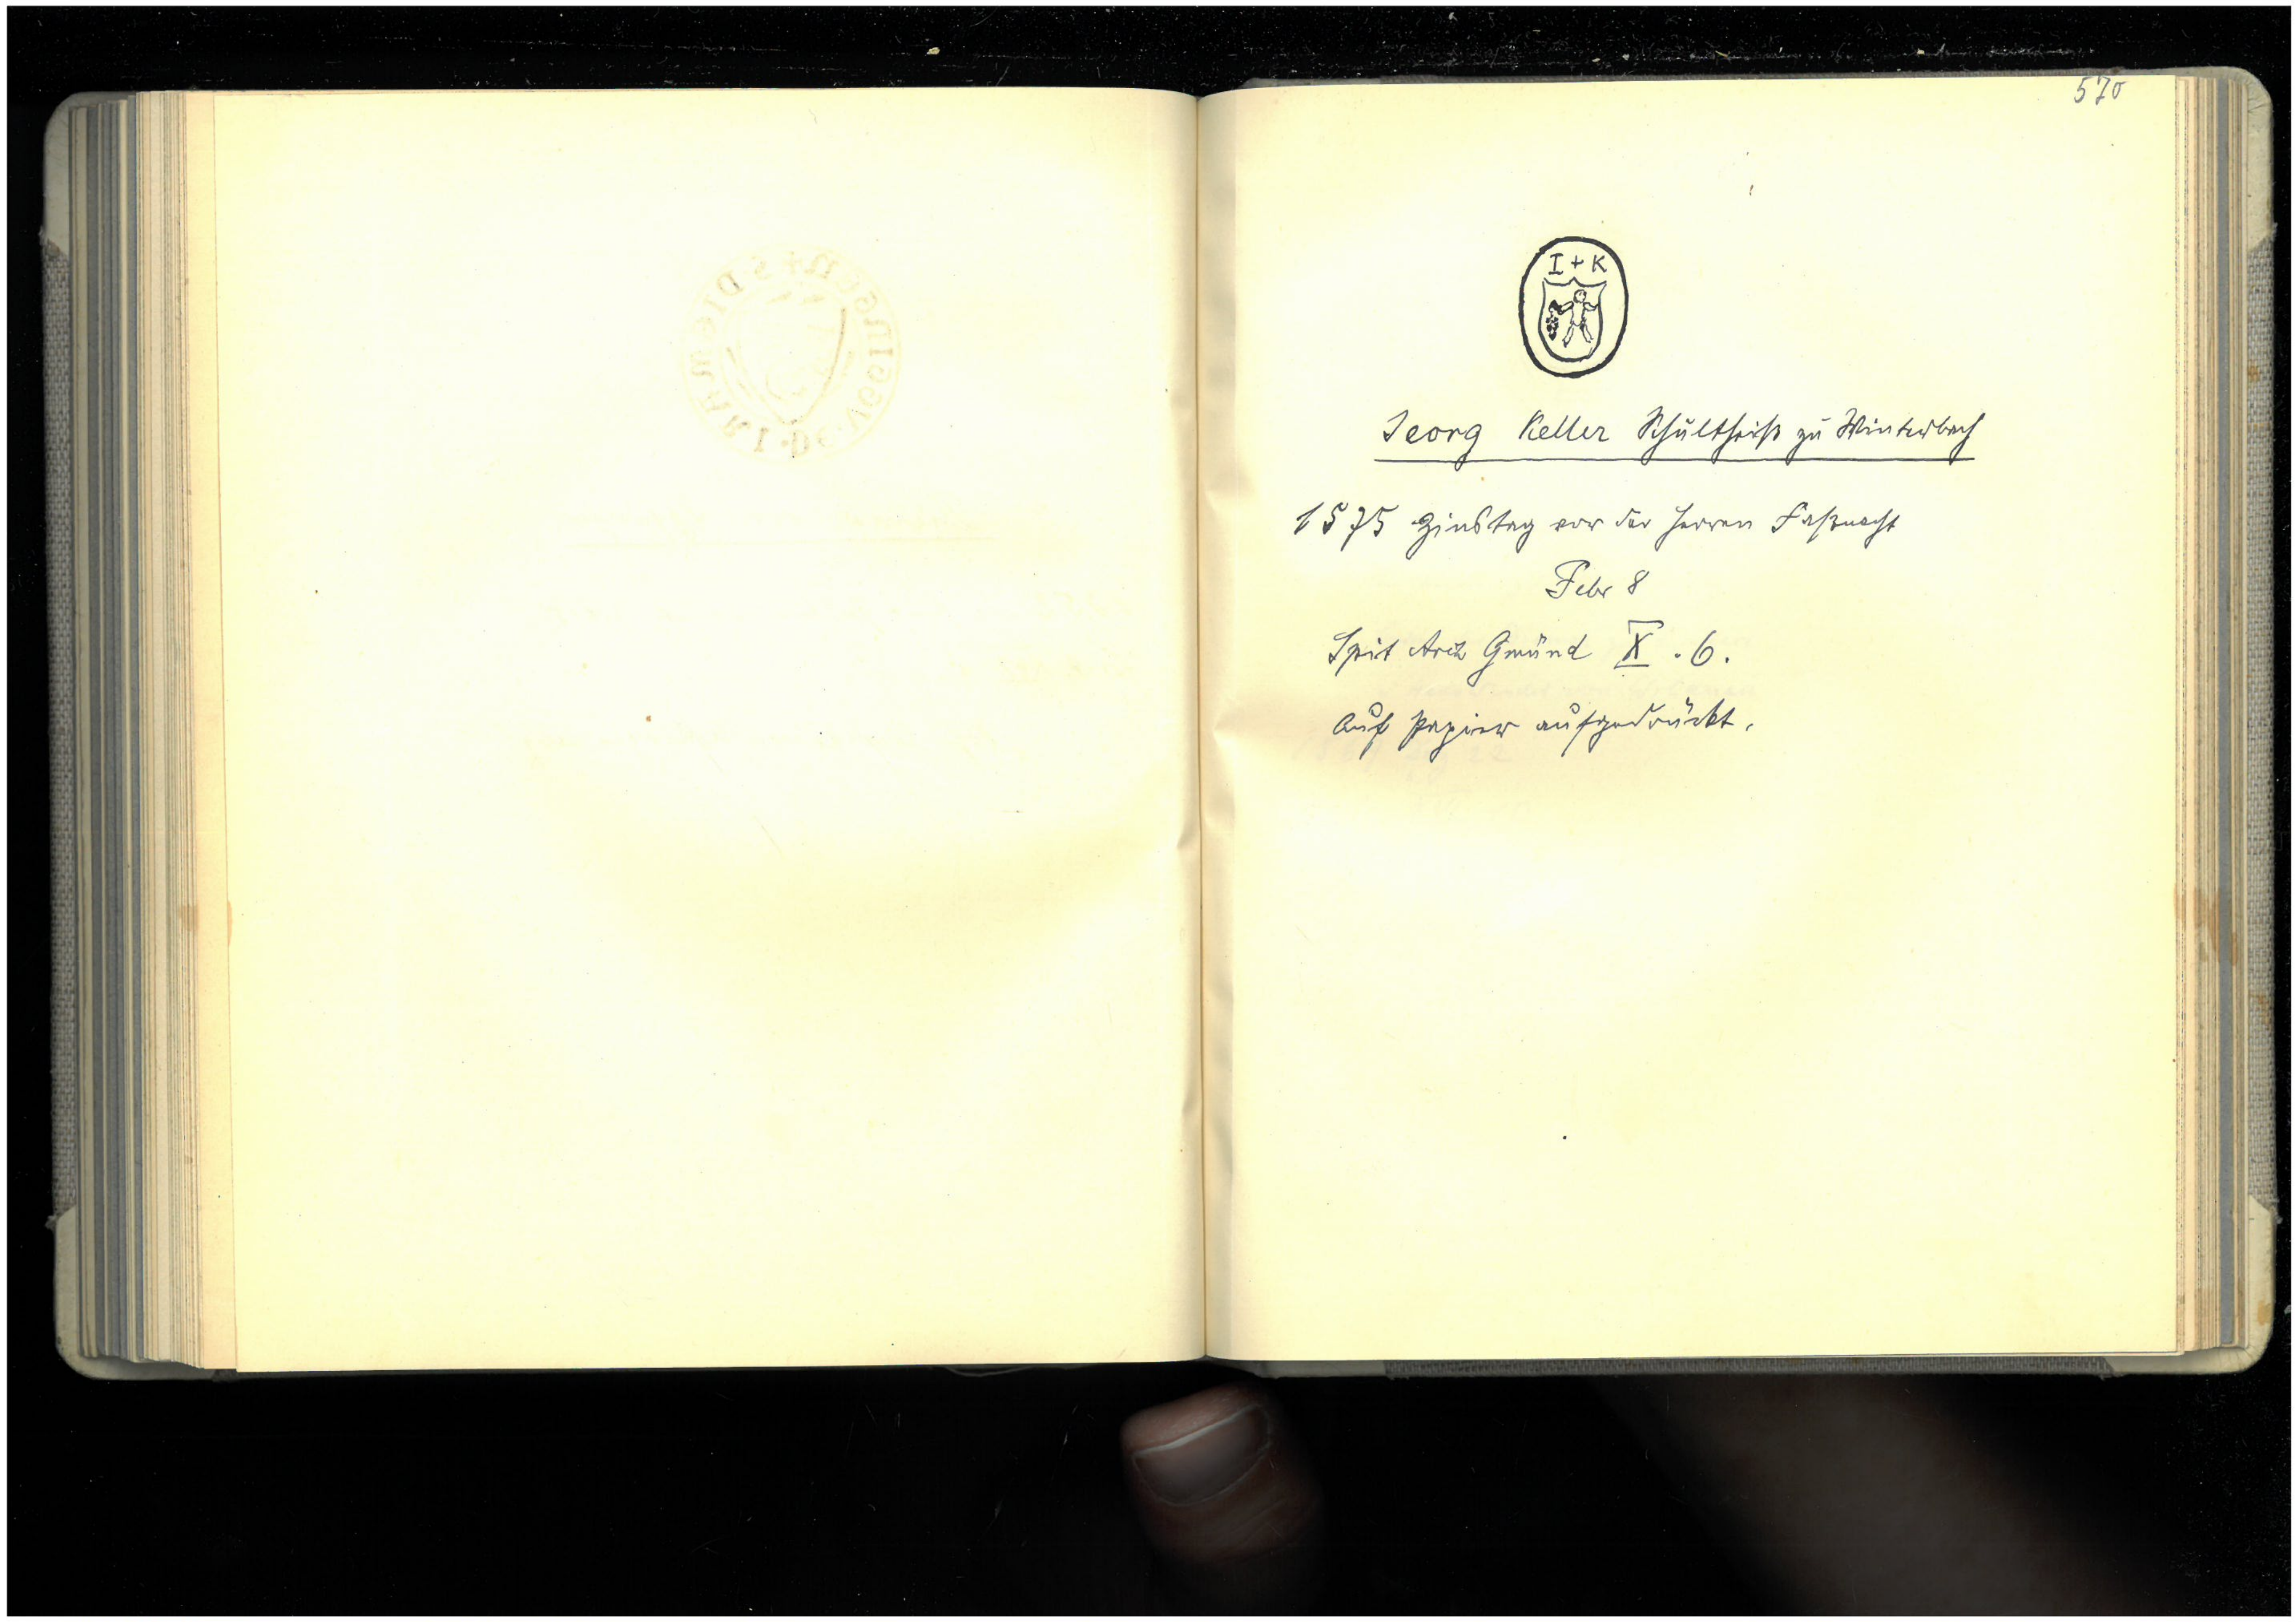 570
I + K
Jeorg Keller Schultheiß zu Winterbach
1575 Zinstag vor der Herren Faßnacht
Febr 8
Spit Arch Gmünd X . 6.
Auf Papier aufgedrückt.